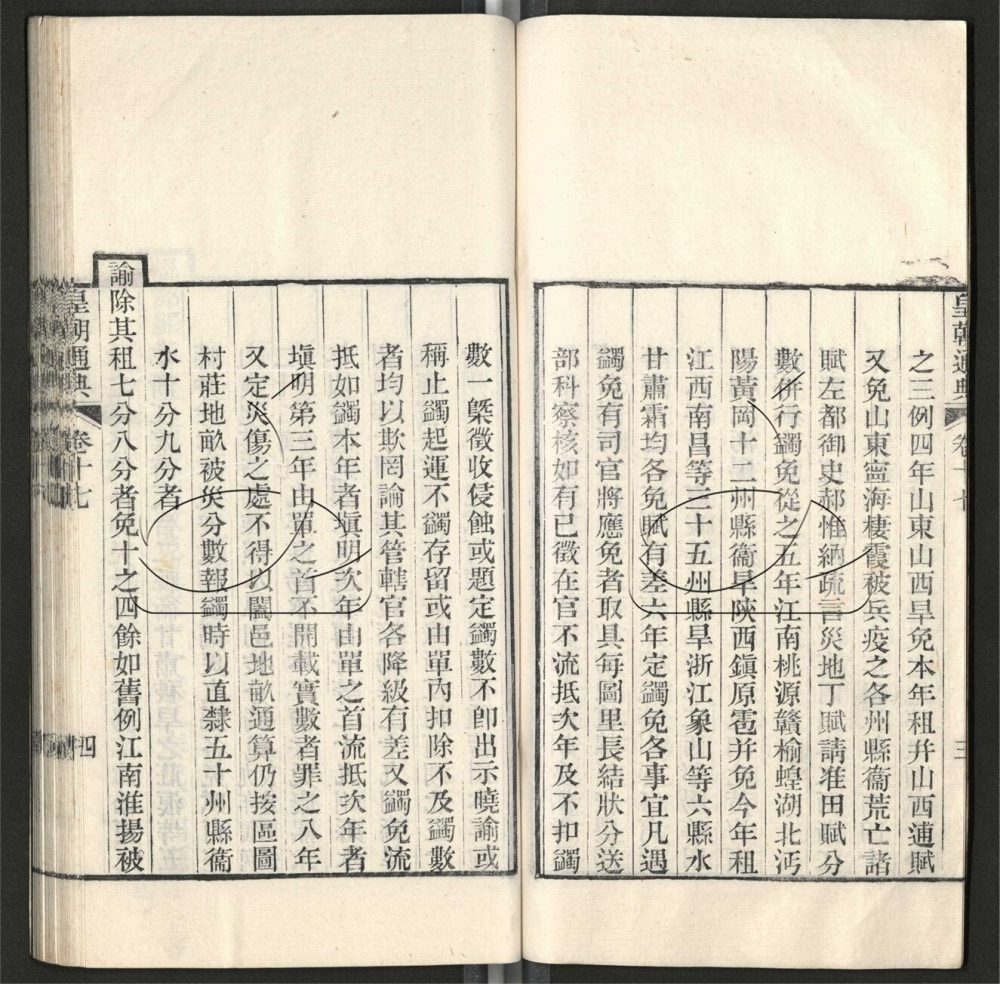 皇朝通典 卷十七 三
之三例四年山東山西旱免本年租幷山西逋賦
又免山東寧海棲霞被兵疫之各州縣衞荒亡諸
賦左都御史郝惟納疏言災地丁賦請准田賦分
數倂行蠲免從之五年江南桃源贛榆蝗湖北沔
陽黃岡十二州縣衞旱陝西鎭原雹并免今年租
江西南昌等三十五州縣旱浙江象山等六縣水
甘肅霜均各免賦有差六年定蠲免各事宜凡遇
蠲免有司官將應免者取具每圖里長結狀分送
部科察核如有已徵在官不流抵次年及不扣蠲
數一槩徵收侵蝕或題定蠲數不卽出示曉諭或
稱止蠲起運不蠲存留或由單內扣除不及蠲數
者均以欺罔論其管轄官各降級有差又蠲免流
抵如蠲本年者塡明次年由單之首流抵次年者
塡明第三年由單之首不開載實數者罪之八年
又定災傷之處不得以闔邑地畝通算仍按區圖
村莊地畝被災分數報蠲時以直隸五十州縣衞
水十分九分者
諭除其租七分八分者免十之四餘如舊例江南淮揚被
皇朝通典 卷十七 四